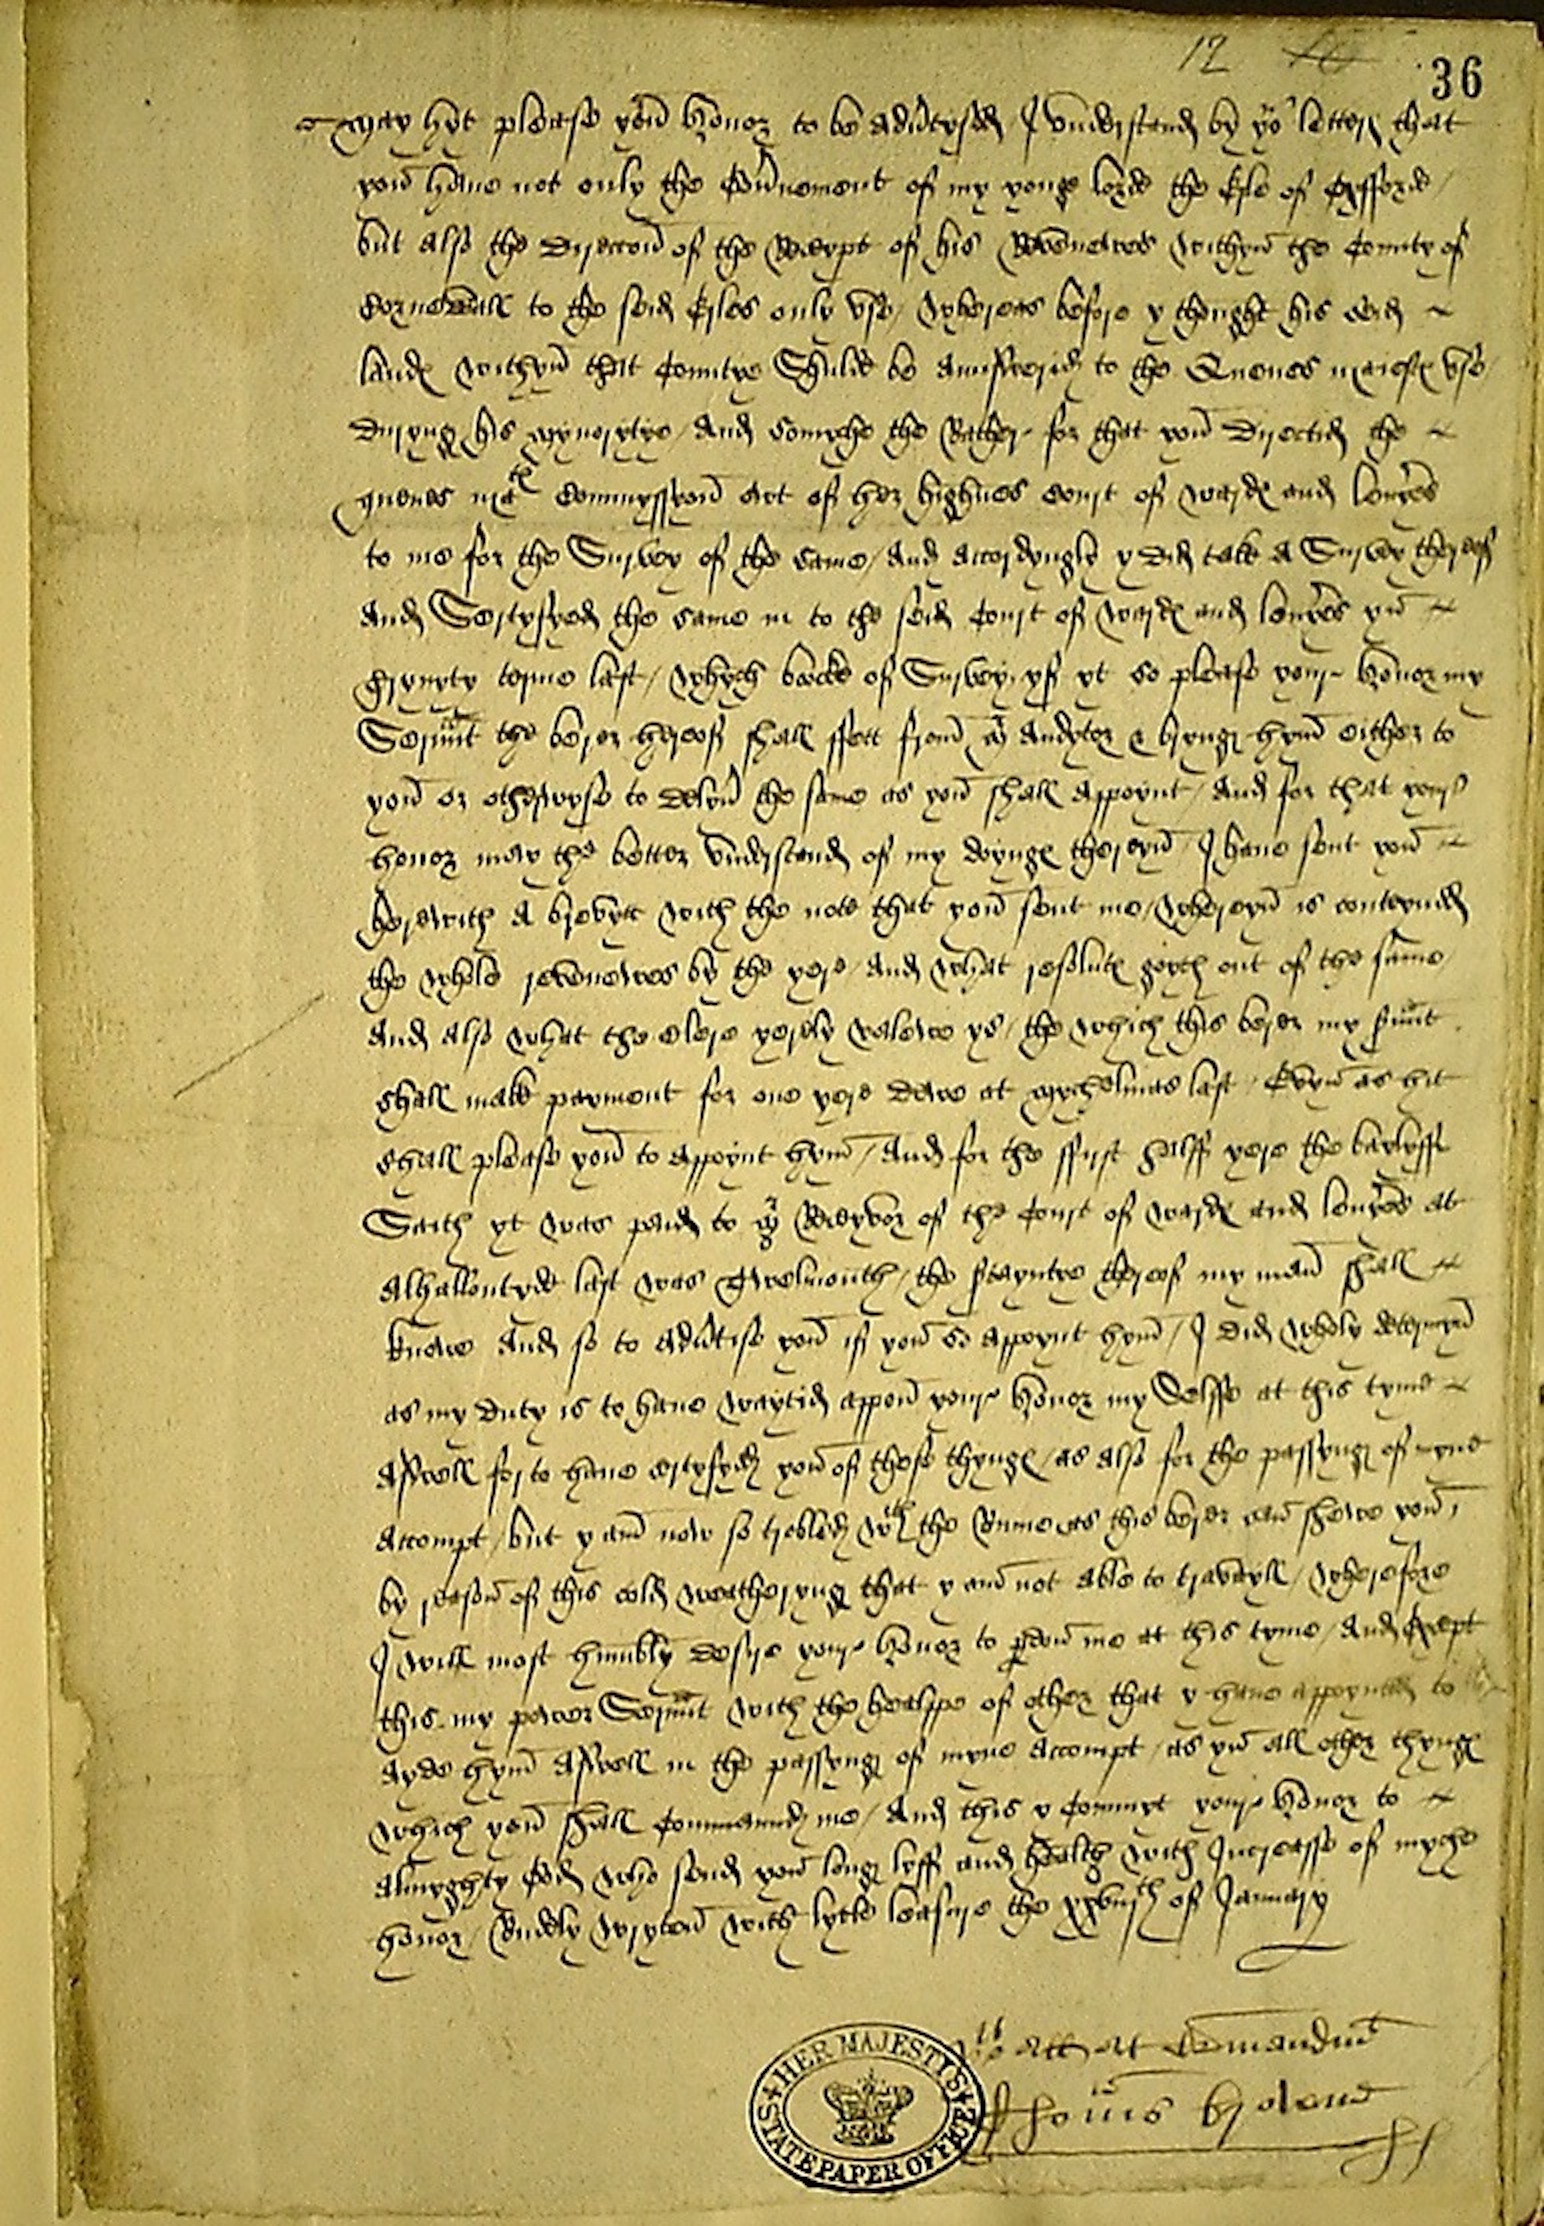 12
36
May hyt please youe honor to be advertysed I understand by yor letters that
you have not only the Governement of my yonge lorde the Erle of Oxfforde /
but also the direccon of the Receypt of his Revenewes within the Countye of
Cornewall to the seid Erles only use / whereas before y thought his seid
landes within that Countye Shulde be aunswerid to the Quenes maiestes use
duryng his mynorytye / And somyche the Rather for that you directid the
quenes mates Commyssyon owt of her highnes Court of wardes and lyvereys
to me for the Survey of the same / and accordyngly y did take a Survey thereof
and Sertyfyed the same in to the seid Court of wardes and lyvereys yn
Trynyty terme last / whych bocke of Survey yf yt so please your honor my
Servant the berer hereof shall ffett from Mr Audytor & bryng hym either to
you or otherwyse to delyver the same as you shall appoynt / And for that your
honor may the better understand of my doynges thereyn I have sent you
herewith a brevytt with the note that you sent me / whereyn is conteynidd
the whole revenewes by the yere / and what resolutes goyth out of the same /
and also what the clere yerely valewe ys / the which this berer my servant
shall make payment for one yere dewe at Mychelmas last / Evyn as hit
shall please you to appoynt hym / And for the ffirst halff yere the baylyff
Saith yt was paid to Mr Receyvor of the Court of wardes and lyvereys at
alhallontyde last was Twelmonth / the Certayntye thereof my man shall
knowe and so to advertise you if you so appoynt hym / I did wholy determyn
as my duty is to have waytid appon your honor my Selffe at this tyme
aswell for to have certyfyed you of these thynges / as also for the passyng of myne
accompt / but y am now so trobled with the Rume as this berer can shewe you /
by reason of this cold weatheryng that y am not able to travayll / wherefore
I will most humbly desyre your honor to pardon me at this tyme / and Except
this my power Servant with the healppe of other that y have appoynted to
ayde hym aswell in the passyng of myne accompt / as yn all other thynges
which you shall Commaund me / And this y Commyt your honor to
almyghty God who send you long lyff and healthe with Increasse of myche
honor / Rudely wryten with lytle leasure the xxviijth of January
Yors att Comandment
Thomas
HER MAJESTY'S
STATE PAPER OFFICE